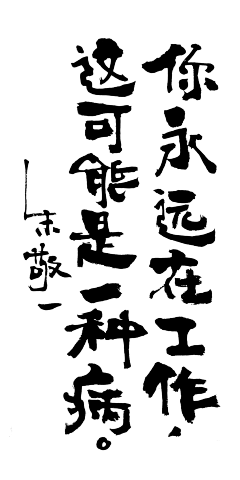 你永远在工作，
这可能是一种病。
——朱敬一